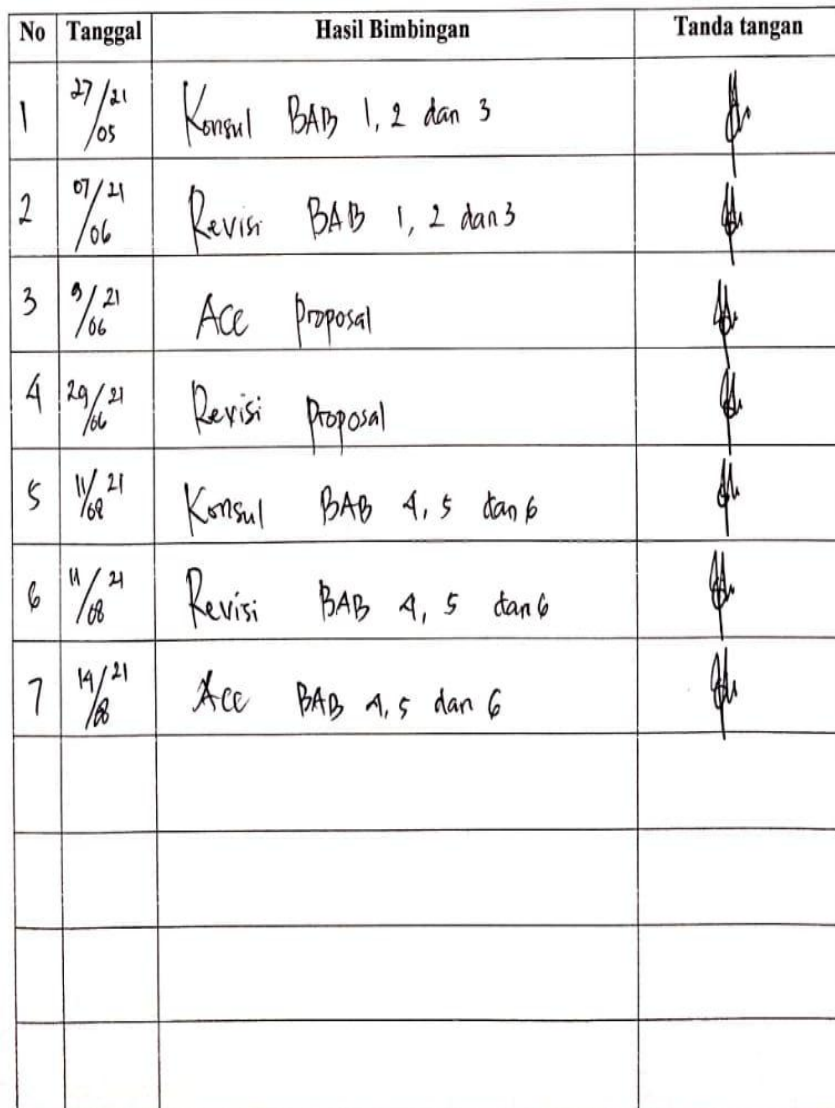 No Tanggal Hasil Bimbingan Tanda tangan
1 27/05 21 Konsul BAB 1, 2 dan 3
2 07/06 21 Revisi BAB 1, 2 dan 3
3 9/06 21 Acc Proposal
4 29/06 21 Revisi Proposal
5 11/08 21 Konsul BAB 4, 5 dan 6
6 11/08 21 Revisi BAB 4, 5 dan 6
7 14/08 21 Acc BAB 4, 5 dan 6